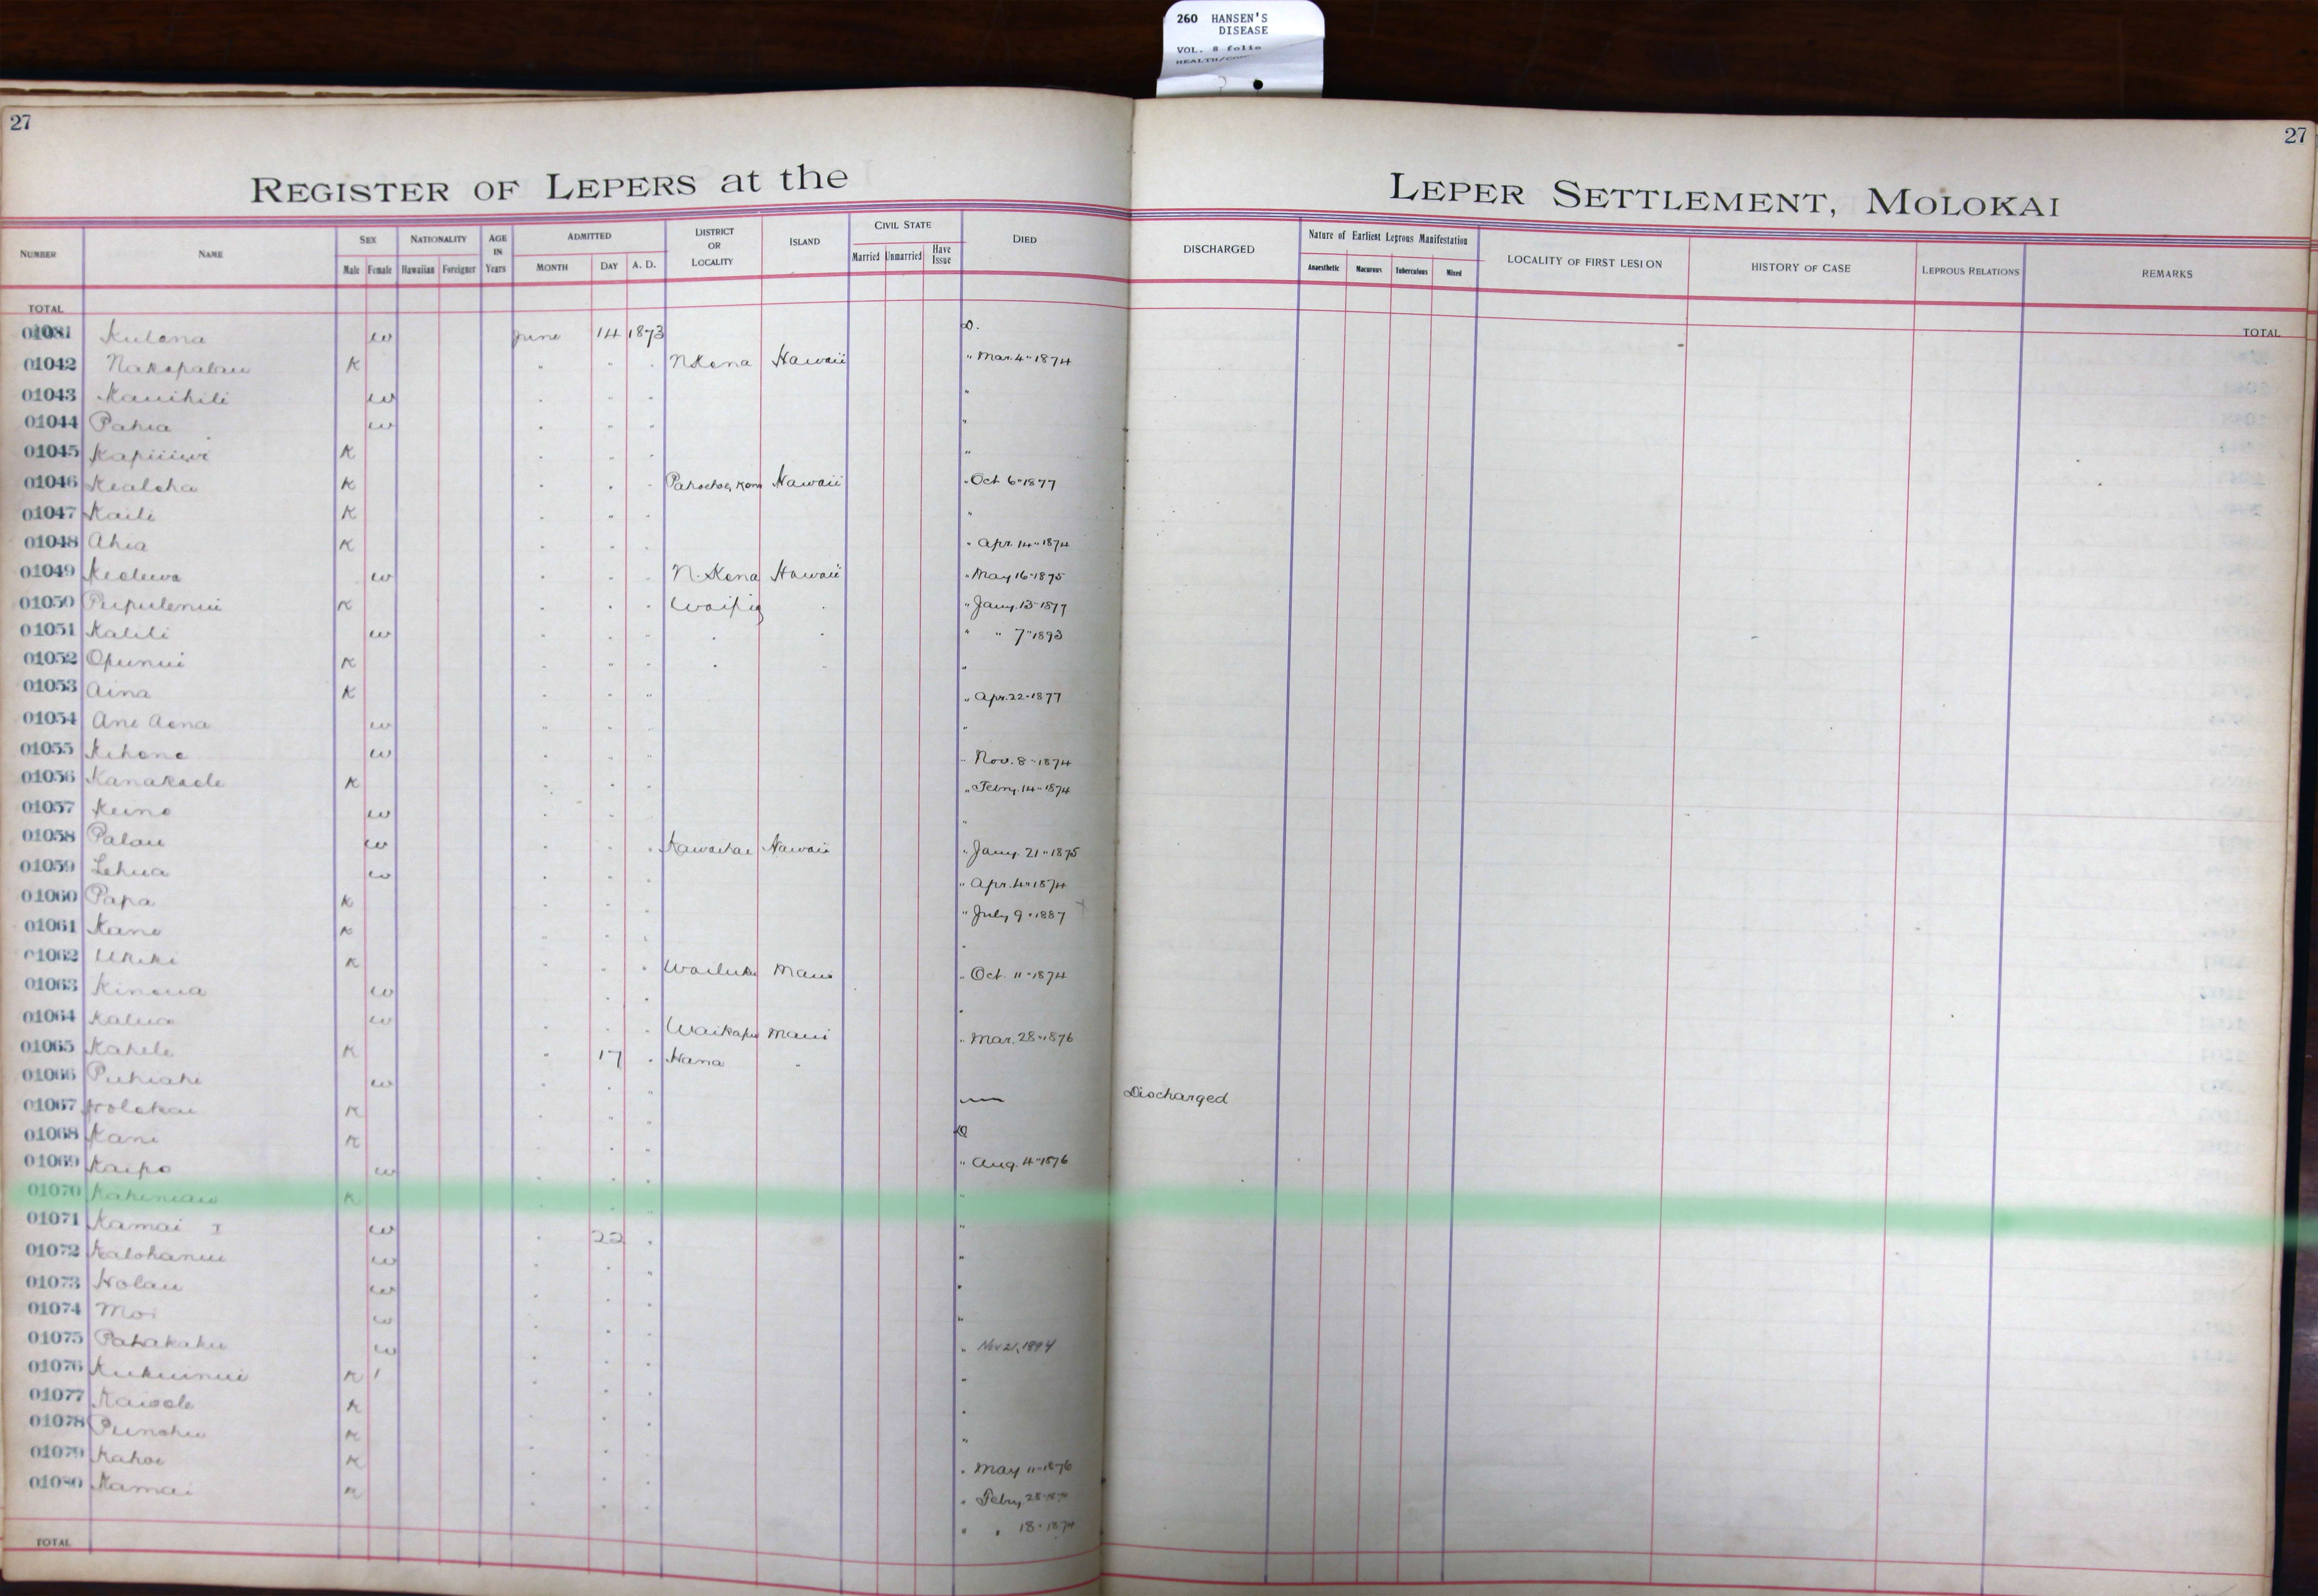 260 HANSEN'S
DISEASE
VOL. 8 folio
27
27
REGISTER OF LEPERS at the
LEPER SETTLEMENT, MOLOKAI
NUMBER NAME SEX Male Female NATIONALITY Hawaiian Foreigner AGE IN Years ADMITTED MONTH DAY A. D. DISTRICT OR LOCALITY ISLAND CIVIL STATE Married Unmarried Have Issue DIED DISCHARGED Nature of Earliest Leprous Manifestation Anaesthetic Macurous Tuberculous Mixed LOCALITY OF FIRST LESION HISTORY OF CASE LEPROUS RELATIONS REMARKS
TOTAL TOTAL
Kulana w June 14 1873 D.
01042 Nakapalau K " " " N Kona Hawaii " Mar. 4 " 1874
01043 Kauihili w " " " "
01044 Pahia w " " " "
01045 K " " " "
01046 Kealoha K " " " Pahoehoe, Kona Hawaii " Oct 6 " 1877
01047 Kaili K " " " "
01048 Ahia K " " " " Apr. 14 " 1874
01049 w " " " N. Kona Hawaii " May 16 " 1875
01050 Pupulenui K " " " Waipio " " Jany. 13 " 1877
01051 Kalili w " " " " " " " 7 " 1893
01052 Opunui K " " " " " "
01053 Aina K " " " " Apr. 22 " 1877
01054 Ane Aena w " " " "
01055 Kihene w " " " " Nov. 8 " 1874
01056 Kanakaole K " " " " Febry. 14 " 1874
01057 Keino w " " " "
01058 Palau w " " " Kawaihae Hawaii " Jany. 21 " 1875
01059 Lehua w " " " " Apr. 4 " 1874
01060 Papa K " " " " July 9 " 1887
01061 Kane K " " " "
01062 Ukeke K " " " Wailuku Maui " Oct. 11 " 1874
01063 Kinoua w " " " "
01064 Kalua w " " " Waikapu Maui " Mar. 28 " 1876
01065 Kahele K " 17 " Hana "
01066 Puhiahi w " " " — Discharged
01067 Holokai K " " " D
01068 Kani K " " " " Aug. 4 " 1876
01069 Kaipo w " " "
01070 K " " " "
01071 Kamai I w " 22 " "
01072 Kalohanui w " " " "
01073 Holau w " " " "
01074 Moi w " " " "
01075 Pahakahu w " " " " Nov 21, 1894
01076 Kukuinui K 1 " " " "
01077 Kaiaole K " " " "
01078 Punohu K " " " "
01079 Kahoe K " " " " May 11 " 1876
01080 Kamai K " " " " Febry 28
" " 18 " 1874
TOTAL